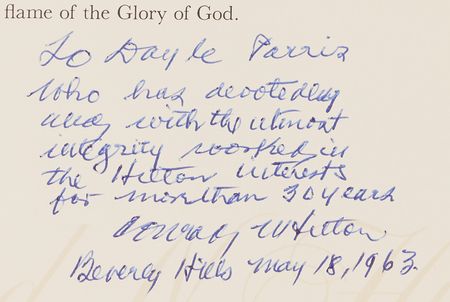 flame of the Glory of God.
To Dayle Parris
who has devotedly
and with the utmost
integrity worked in
the Hilton interests
for more than 30 years
Conrad N Hilton
Beverly Hills May 18, 1963.